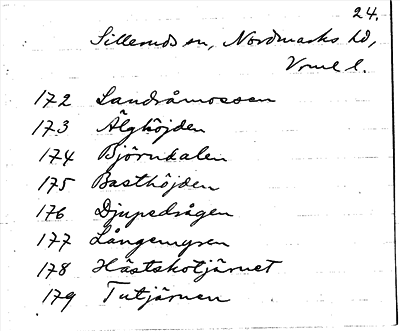 24.
Silleruds sn, Nordmarks hd,
Vrml l.
172 Landråmossen
173 Älghöjden
174 Björndalen
175 Basthöjden
176 Djupedrågen
177 Långemyren
178 Hästskotjärnet
179 Tutjärnen